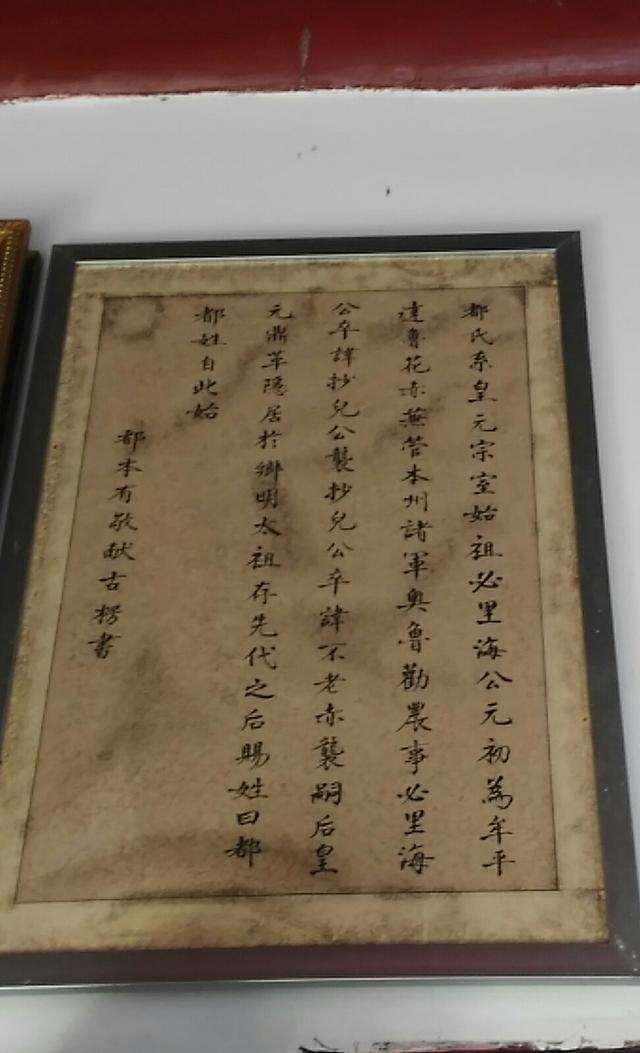 都氏系皇元宗室始祖必里海公元初為牟平
達魯花赤蕪管本州諸軍奥魯勸農事必里海
公卒諱抄兒公襲抄兒公卒諱不老赤襲嗣后皇
元鼎革隐居於鄉明太祖存先代之后賜姓曰都
都姓自此始
都本有敬献古楞書